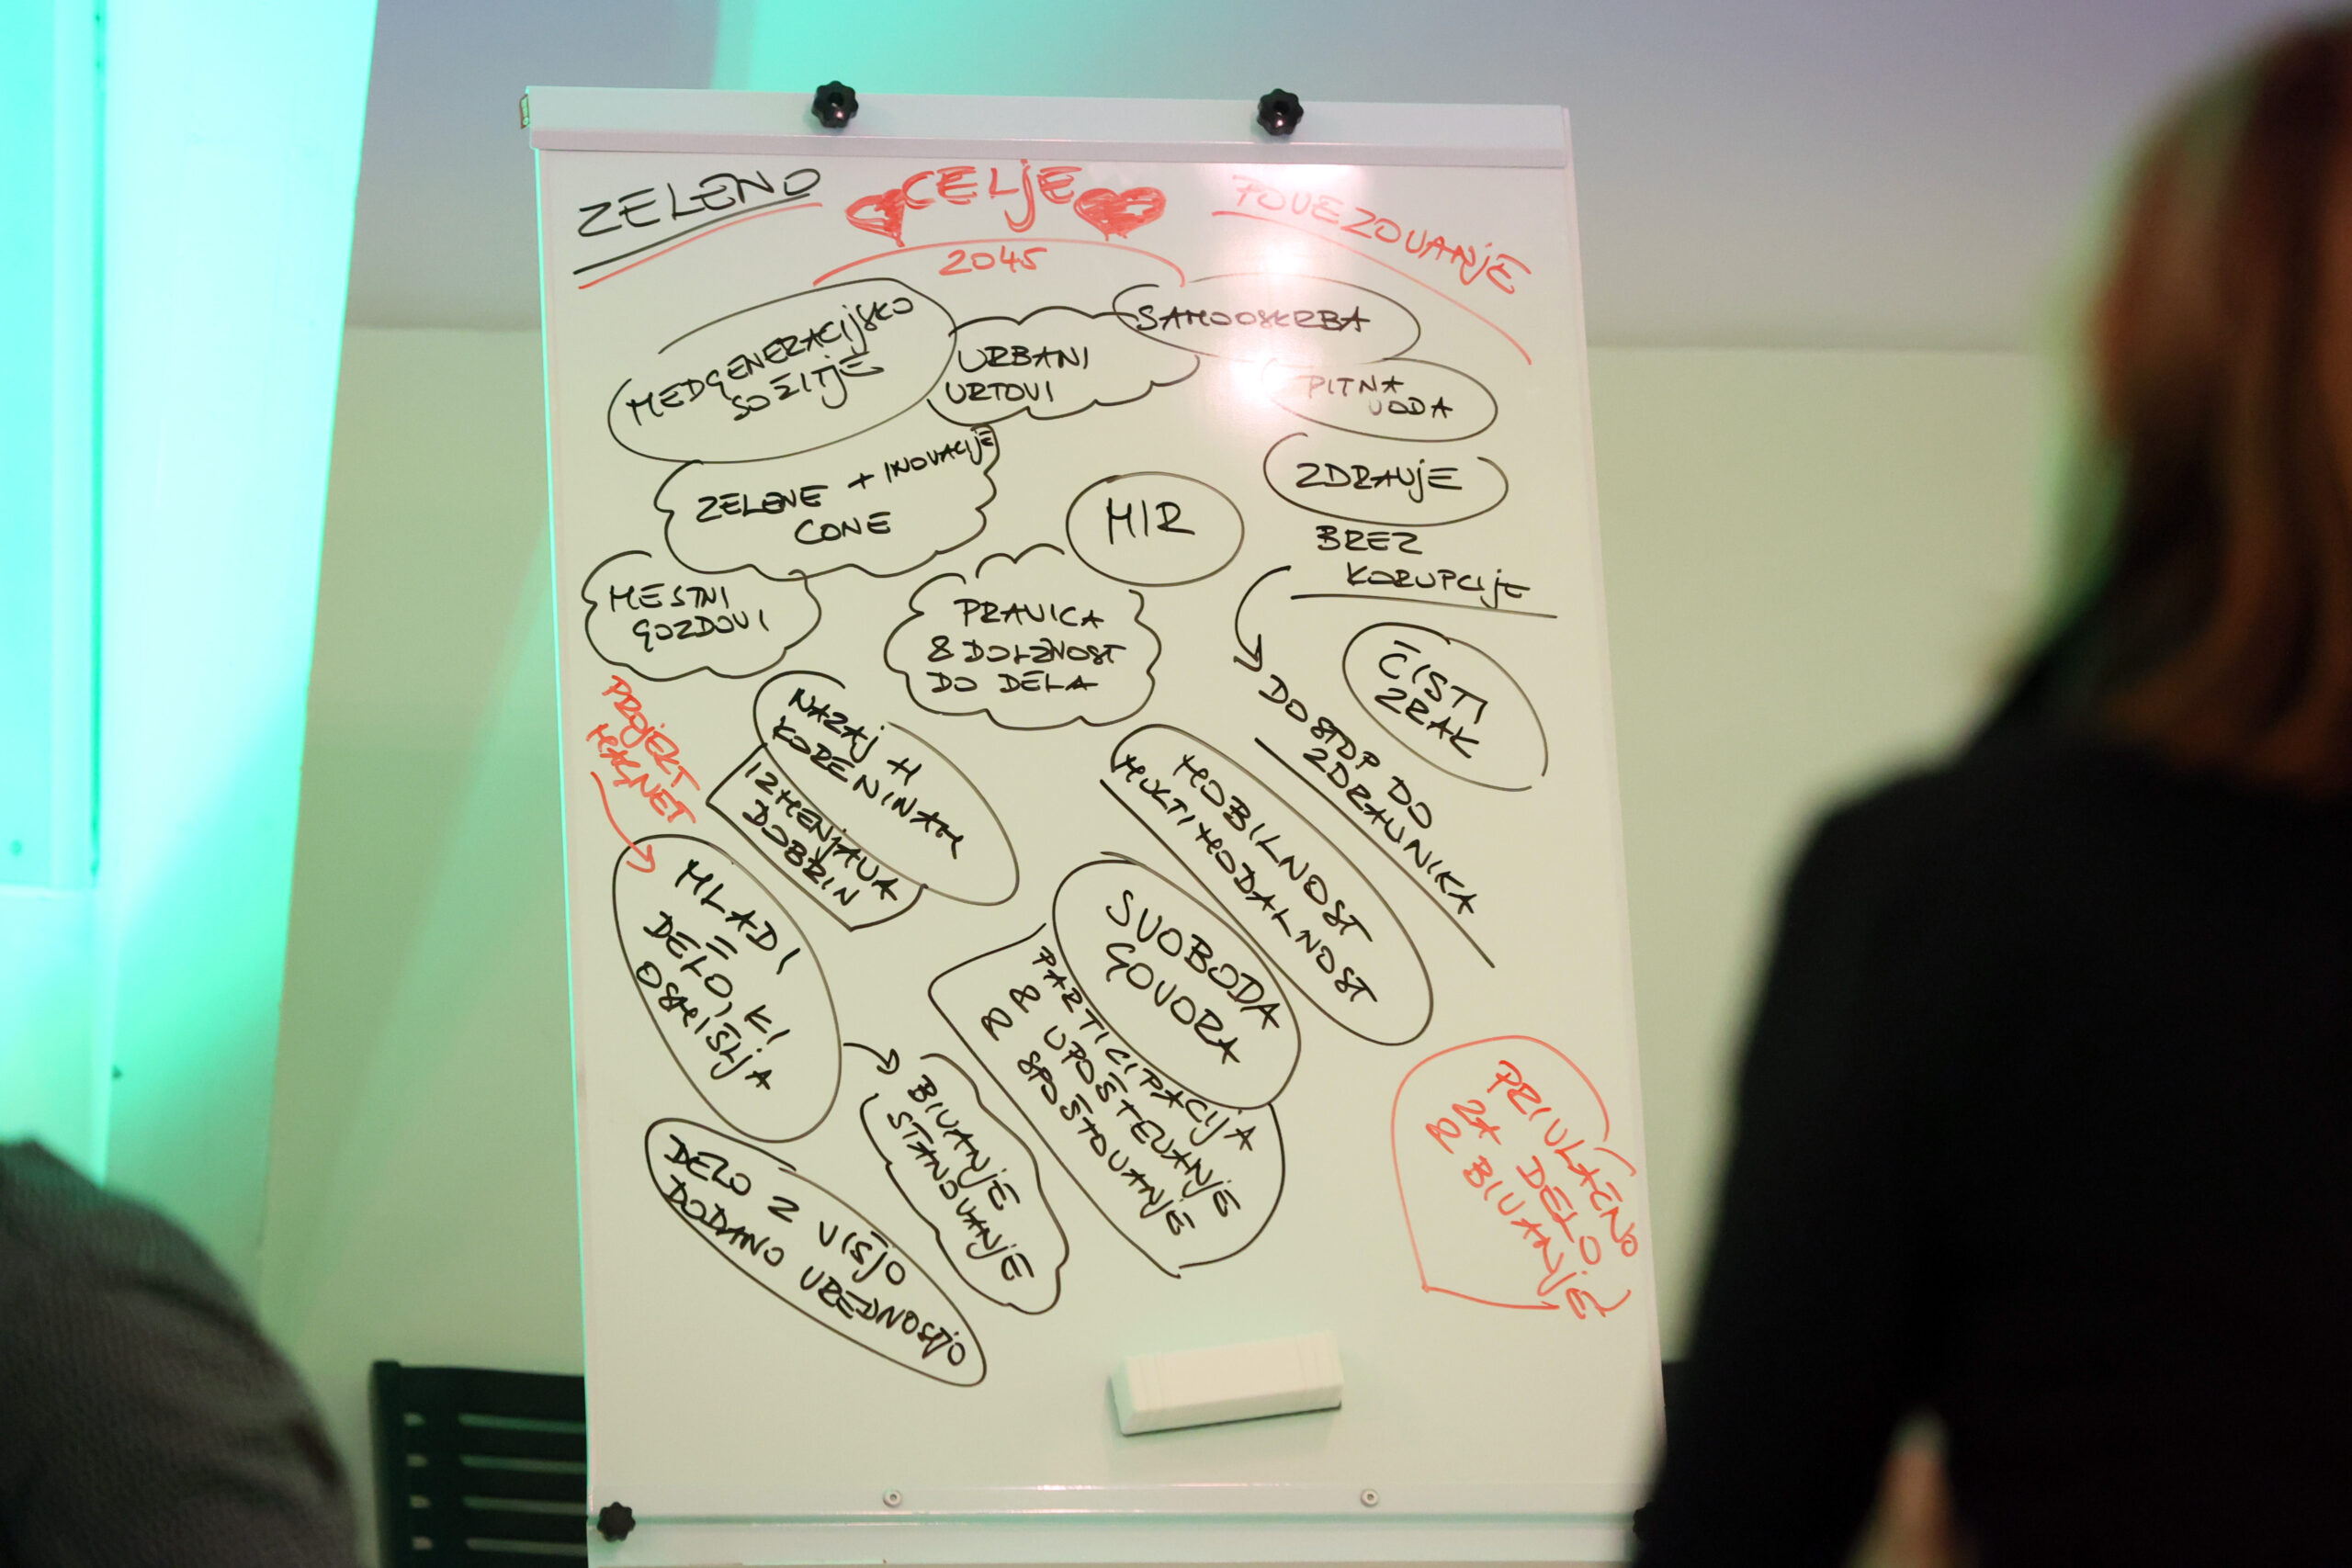 ZELENO
CELJE
2045
POVEZOVANJE
MEDGENERACIJSKO
SOŽITJE
URBANI
VRTOVI
SAMOOSKRBA
PITNA
VODA
ZELENE + INOVACIJE
CONE
MIR
ZDRAVJE
BREZ
KORUPCIJE
MESTNI
GOZDOVI
PRAVICA
& DOLŽNOST
DO DELA
ČISTI
ZRAK
DOSTOP DO
ZDRAVNIKA
PROJEKT
MAGNET
NAZAJ H
KORENINAM
IZMENJAVA
DOBRIN
MOBILNOST
MULTIMODALNOST
MLADI
=
DELO, KI
OSMIŠLJA
SVOBODA
GOVORA
PARTICIPACIJA
& UPOŠTEVANJE
& SPOŠTOVANJE
BIVANJE
STANOVANJE
DELO Z VIŠJO
DODANO VREDNOSTJO
PRIVLAČNO
ZA DELO
& BIVANJE